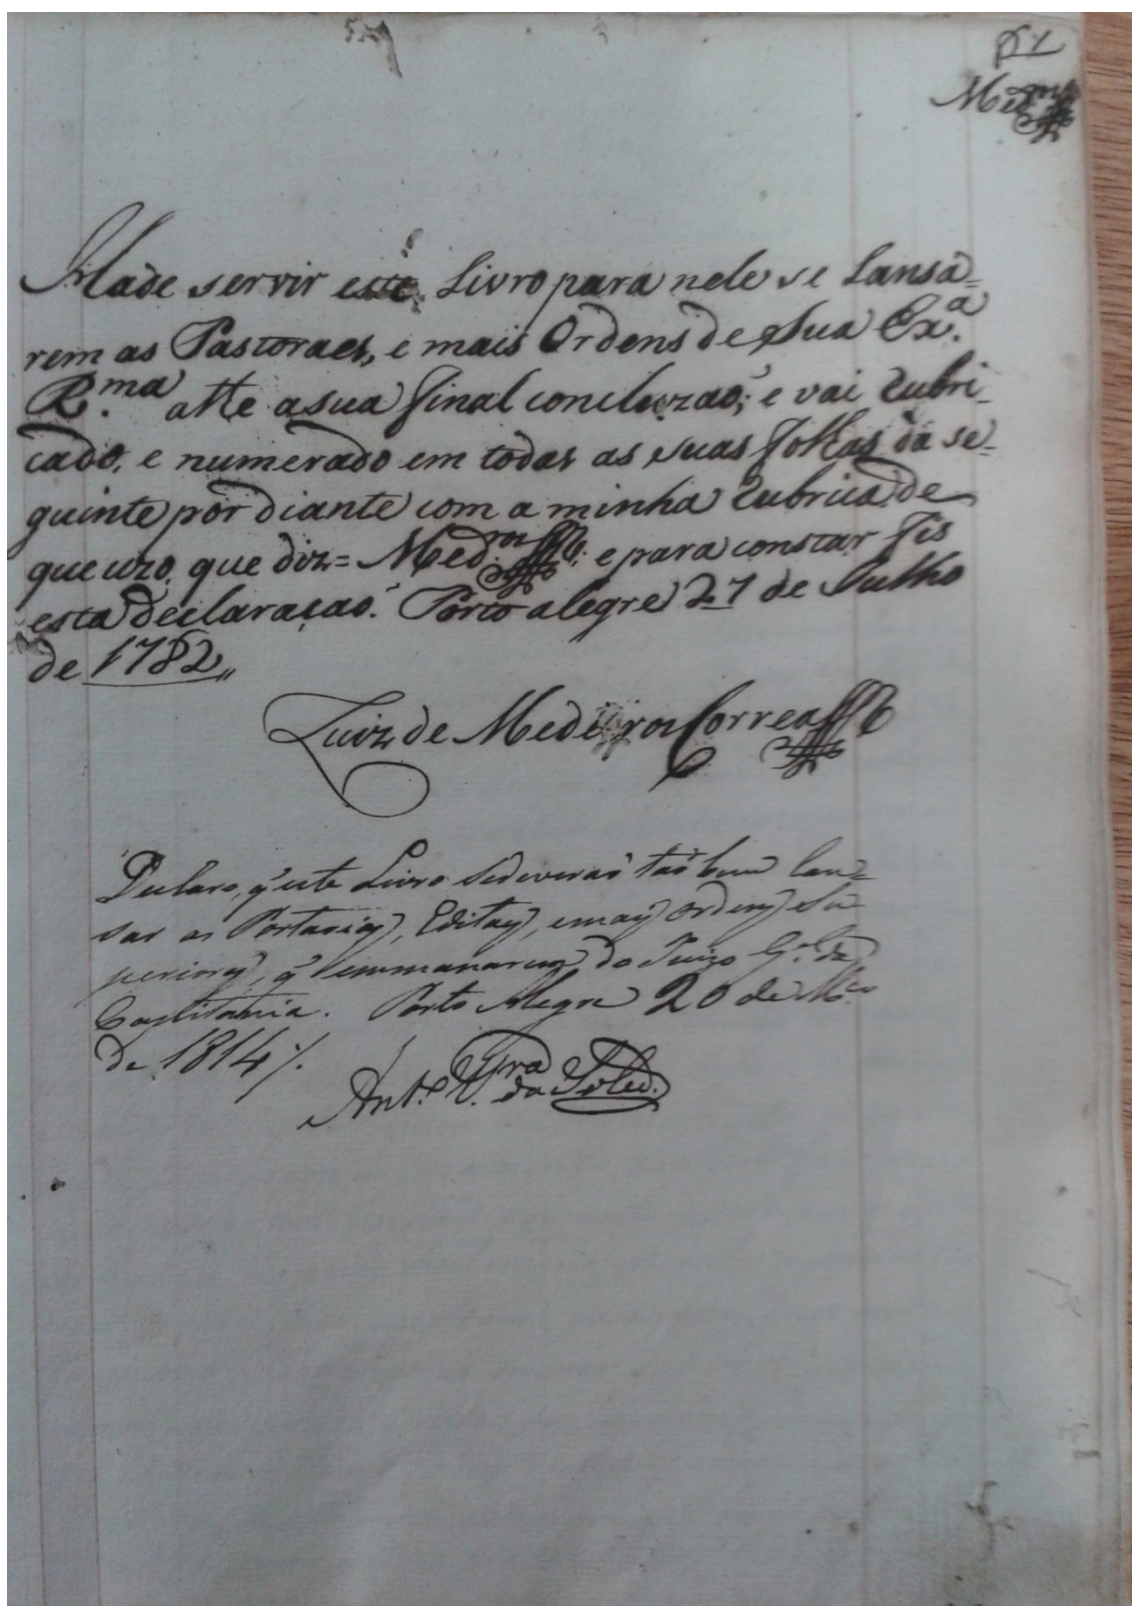 Med.ros
Hade servir este Livro para nele se Lansa=
rem as Pastoraes, e mais Ordens de Sua Ex.a
R.ma atte a sua final concluzaó; e vai rubri_
cado, e numerado em todas as suas folhas da se=
guinte por diante com a minha rubrica de
que uzo, que diz= Med.ros e para constar fis
esta declaraçaó. Porto alegre 27 de Julho
de 1782,,
Luiz de Medeiros Correa
Declaro, q' este Livro se deverao' taõ bem lan=
sar as Portarias, Editaes, e mais Ordens Su
periores, q' emmanarem do Juizo G.al da
Capitania. Porto Alegre 20 de M.ço
de 1814/.
Ant.o V.ra da Soled.